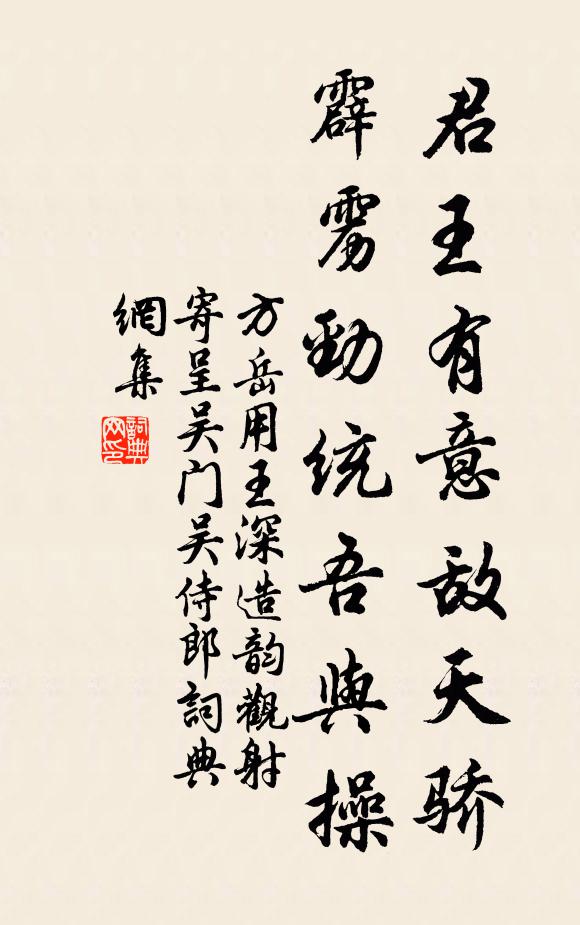 君王有意敌天骄
霹雳劲统吾与操
方岳用王深造韵觀射
寄呈吴门吴侍郎詞典
網集
詞典
网印